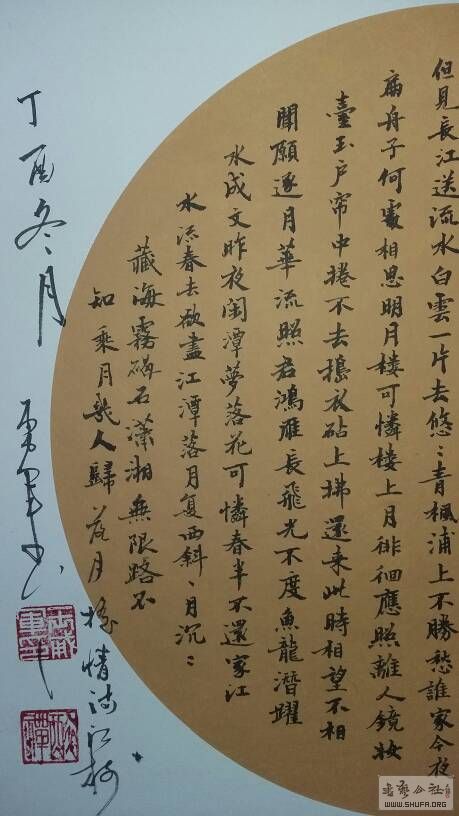 但見長江送流水白雲一片去悠〻青楓浦上不勝愁誰家今夜
扁舟子何處相思明月樓可憐樓上月徘徊應照離人鏡妝
臺玉戶帘中捲不去搗衣砧上拂還来此時相望不相
聞願逐月華流照君鴻雁長飛光不度魚龍潛躍
水成文昨夜閑潭夢落花可憐春半不還家江
水流春去欲盡江潭落月复西斜〻月沉〻
藏海霧碣石瀟湘無限路不
知乘月幾人歸落月搖情滿江樹
丁酉冬月
书艺公社
WWW.SHUFA.ORG